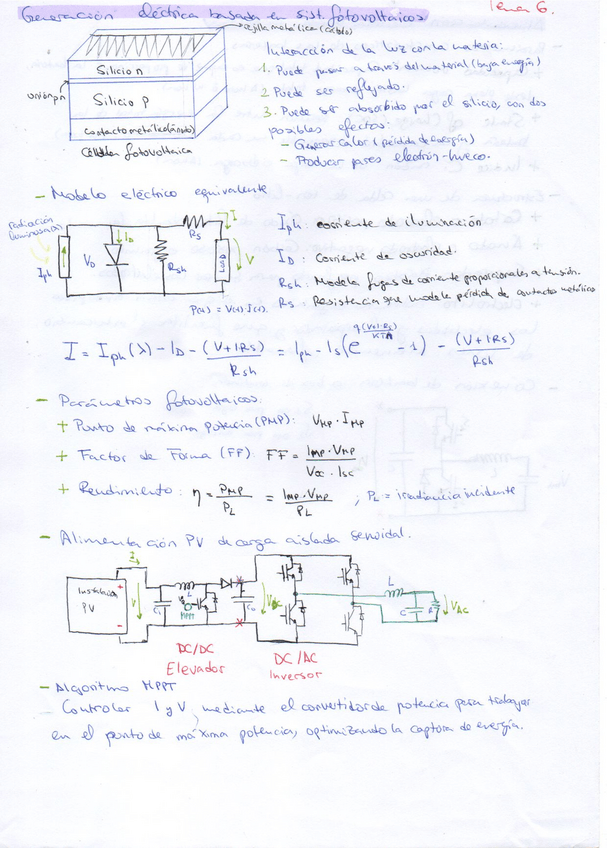 Generación eléctrica basada en sist. fotovoltaicos
Tema 6.
rejilla metálica (cátodo)
Silicio n
unión pn
Silicio p
contacto metálico (ánodo)
Célula fotovoltaica
Interacción de la luz con la materia:
1. Puede pasar a través del material (baja energía)
2. Puede ser reflejado.
3. Puede ser absorbido por el silicio, con dos
posibles efectos:
- Generar calor (pérdida de energía)
- Producir pares electrón-hueco.
- Modelo eléctrico equivalente
radiación
luminosa (λ)
Iph
VD
ID
Rsh
Rs
I
V
P(t) = V(t)·I(t).
Iph: corriente de iluminación
ID: Corriente de oscuridad.
Rsh: Modela fugas de corriente proporcionales a tensión.
Rs: Resistencia que modela pérdida de contacto metálico
I = Iph(λ) - ID - (V+IRs)/Rsh = Iph - Is(e^(q(V+I·Rs)/KTA) - 1) - (V+IRs)/Rsh
- Parámetros fotovoltaicos:
+ Punto de máxima potencia (PMP): VMP·IMP
+ Factor de Forma (FF): FF = IMP·VMP / Voc·Isc
+ Rendimiento: η = PMP/PL = IMP·VMP/PL ; PL = irradiancia incidente
- Alimentación PV de carga aislada senoidal.
Instalación
PV
+
-
I
V
L
MPPT
L
C
R
VAC
DC/DC
Elevador
DC/AC
Inversor
- Algoritmo MPPT
Controlar I y V, mediante el convertidor de potencia para trabajar
en el punto de máxima potencia, optimizando la captura de energía.